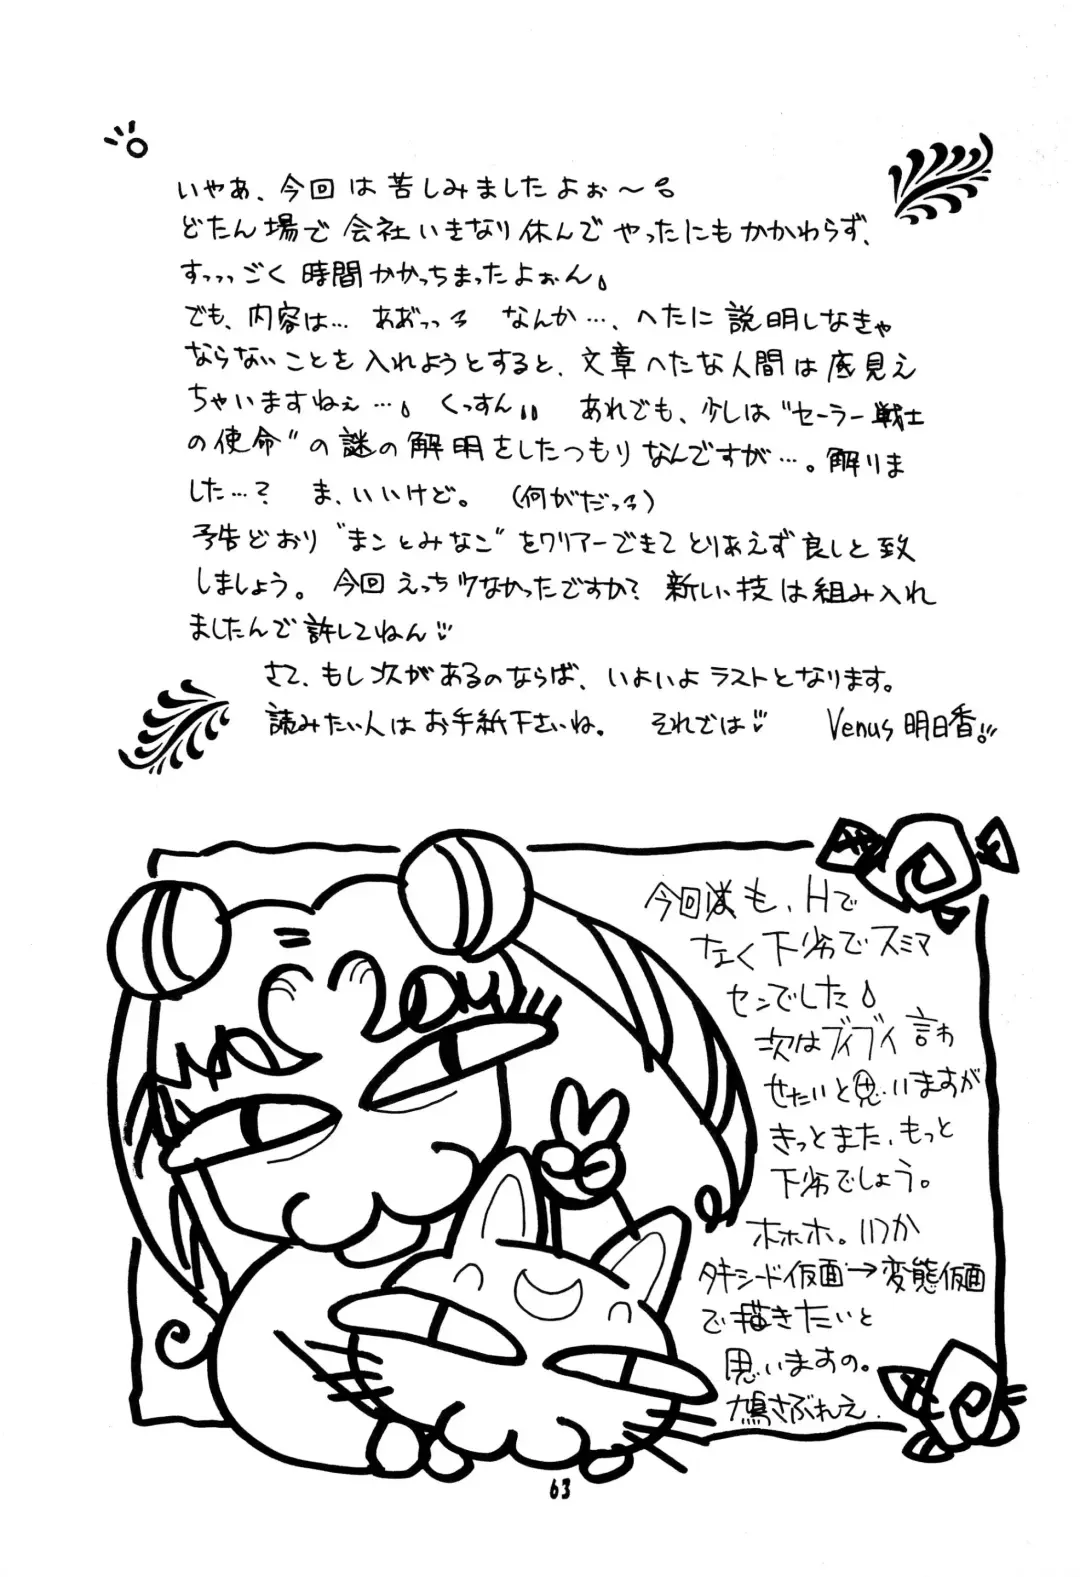 いやあ、今回は苦しみましたよぉ〜
どたん場で会社いきなり休んでやったにもかかわらず、
すっっっごく時間かかっちまったよぉん
でも、内容は… あおっっ なんか…、へたに説明しなきゃ
ならないことを入れようとすると、文章へたな人間は底見え
ちゃいますねぇ… くっすん あれでも、少しは“セーラー戦士
の使命”の謎の解明をしたつもりなんですが…。解りま
した…? ま、いいけど。 (何がだっ)
予告どおり“まことみなこ”をクリアーできてとりあえず良しと致
しましょう。 今回えっち少なかったですか? 新しい技は組み入れ
ましたんで許してねん♡
さて、もし次があるのならば、いよいよラストとなります。
読みたい人はお手紙下さいね。 それでは♡ Venus 明日香!!
今回も、Hで
なく下劣でスミマ
センでした
次はブイブイ言わ
せたいと思いますが
きっとまた、もっと
下劣でしょう。
ホホホ。いつか
タキシード仮面→変態仮面
で描きたいと
思いますの。
鳩さぶれえ
63